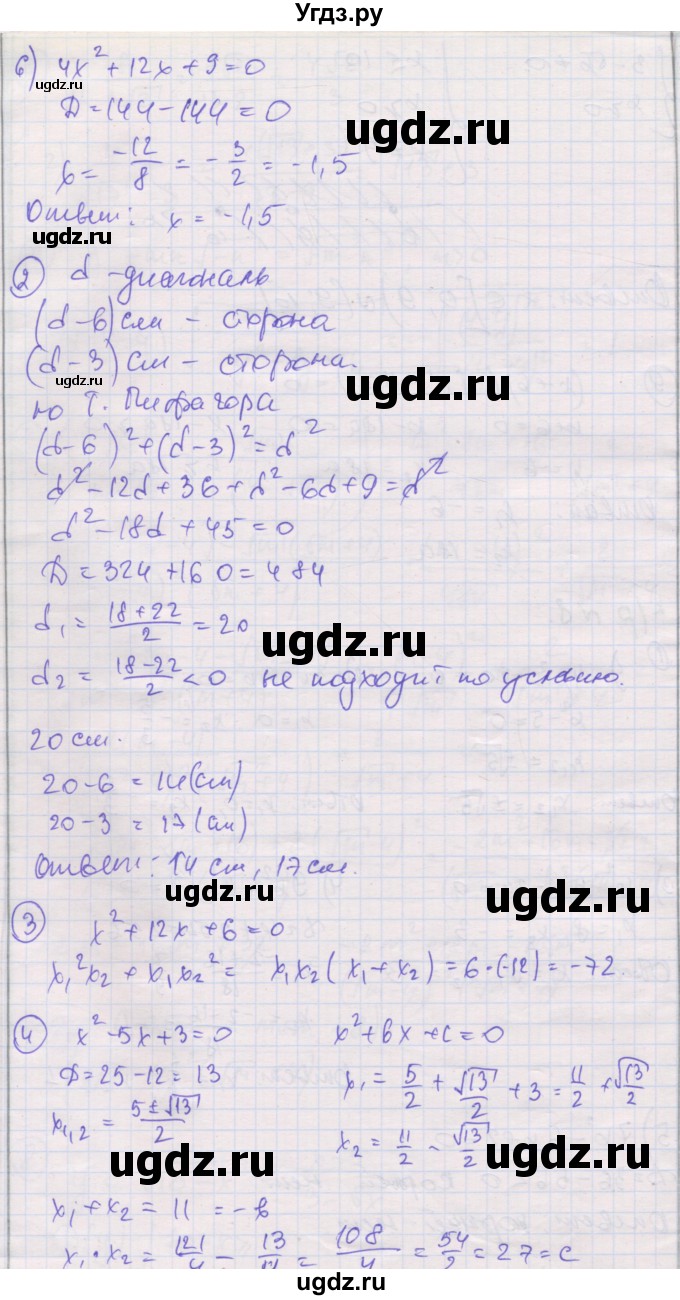 Угдз.ру
6) 4x² + 12x + 9 = 0
Д = 144 - 144 = 0
ugdz.ru
x = -12/8 = - 3/2 = -1,5
Ответ: x = -1,5
ugdz.ru
② d - диагональ
(d-6) см - сторона
(d-3) см - сторона.
ugdz.ru
ugdz.ru
по т. Пифагора
(d-6)² + (d-3)² = d²
d² - 12d + 36 + d² - 6d + 9 = d²
d² - 18d + 45 = 0
Д = 324 + 160 = 484
d₁ = (18+22)/2 = 20
ugdz.ru
d₂ = (18-22)/2 < 0 не подходит по условию.
20 см.
20 - 6 = 14 (см)
20 - 3 = 17 (см)
Ответ: 14 см, 17 см.
ugdz.ru
ugdz.ru
③ x² + 12x + 6 = 0
x₁²x₂ + x₁x₂² = x₁x₂(x₁ + x₂) = 6·(-12) = -72
④ x² - 5x + 3 = 0 x² + bx + c = 0
Д = 25 - 12 = 13 x₁ = 5/2 + √13/2 + 3 = 11/2 + √13/2
x₁,₂ = (5 ± √13)/2 x₂ = 11/2 - √13/2
ugdz.ru
ugdz.ru
x₁ + x₂ = 11 = -b
x₁ · x₂ = 121/4 - 13/4 = 108/4 = 54/2 = 27 = c
ugdz.ru